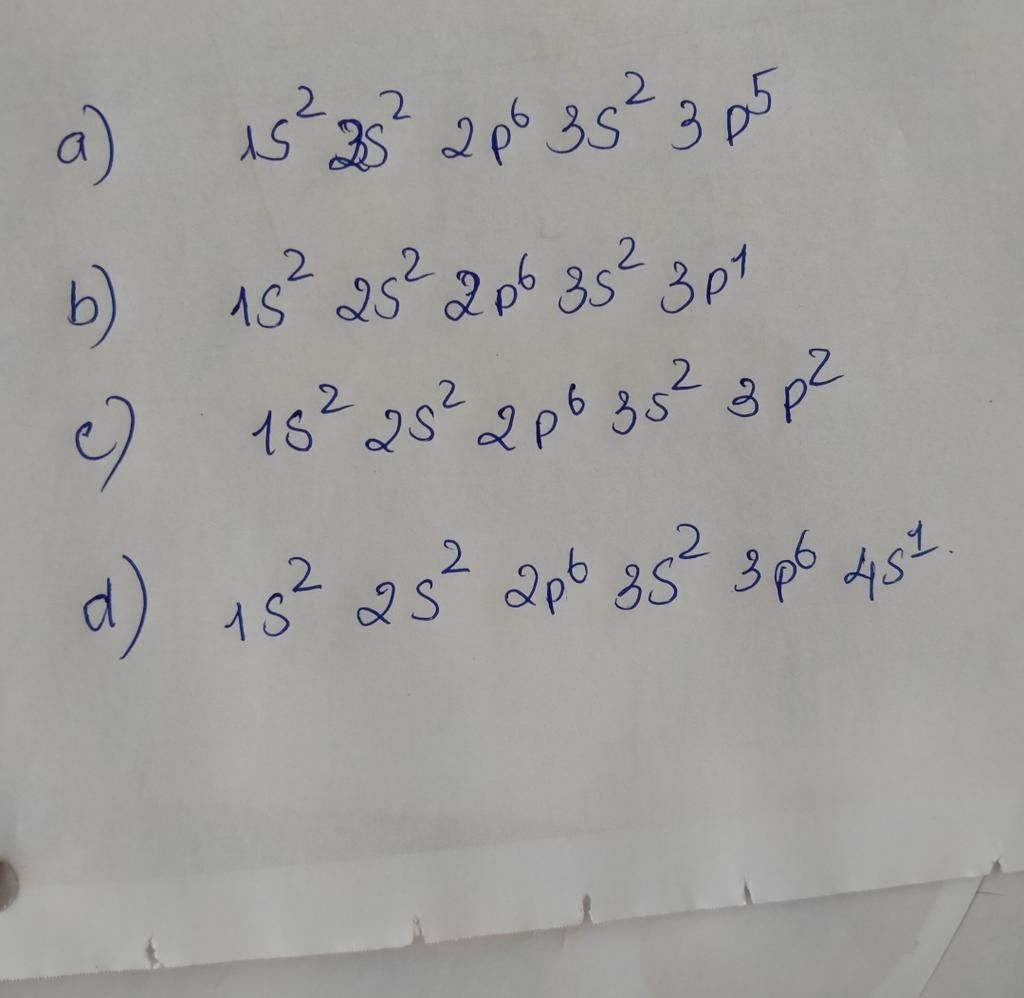 a) 1s² 2s² 2p⁶ 3s² 3p⁵
b) 1s² 2s² 2p⁶ 3s² 3p¹
c) 1s² 2s² 2p⁶ 3s² 3p²
d) 1s² 2s² 2p⁶ 3s² 3p⁶ 4s¹.